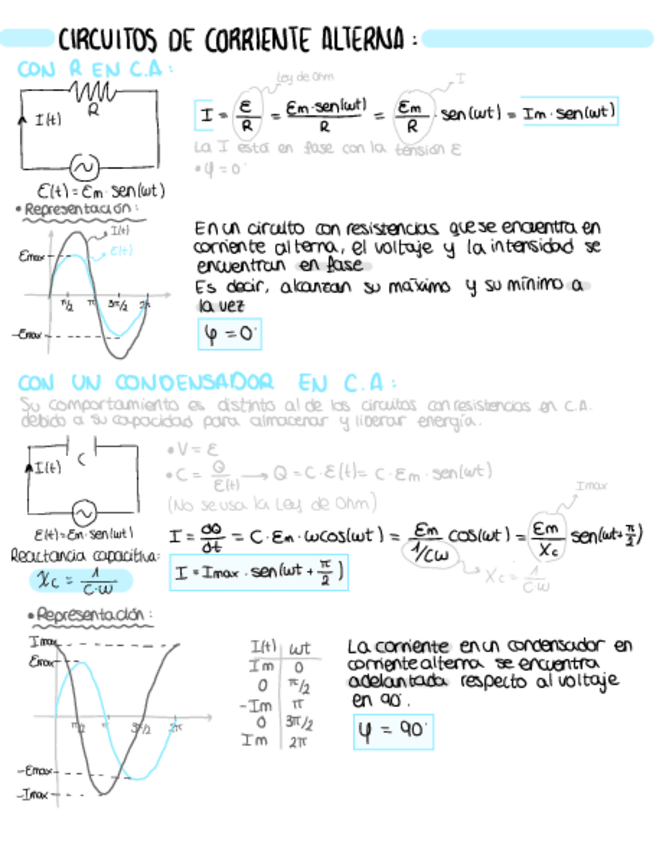 CIRCUITOS DE CORRIENTE ALTERNA:
CON R EN C.A:
Ley de Ohm
I
R
I(t)
I = ε/R = εm·sen(ωt)/R = εm/R · sen(ωt) = Im · sen(ωt)
La I está en fase con la tensión ε
• φ = 0°
ε(t) = εm · sen(ωt)
• Representación:
I(t)
ε(t)
εmax
π/2 π 3π/2 2π
-εmax
En un circuito con resistencias que se encuentra en
corriente alterna, el voltaje y la intensidad se
encuentran en fase
Es decir, alcanzan su máximo y su mínimo a
la vez
φ = 0°
CON UN CONDENSADOR EN C.A:
Su comportamiento es distinto al de los circuitos con resistencias en C.A.
debido a su capacidad para almacenar y liberar energía.
I(t)
C
• V = ε
• C = Q/ε(t) → Q = C·ε(t) = C·εm·sen(ωt)
(No se usa la Ley de Ohm)
Imax
ε(t) = εm·sen(ωt)
I = dQ/dt = C·εm·ωcos(ωt) = εm/(1/Cω) cos(ωt) = εm/Xc sen(ωt+π/2)
Reactancia capacitiva:
Xc = 1/C·ω
I = Imax · sen(ωt + π/2)
Xc = 1/Cω
• Representación:
Imax
εmax
π/2 π 3π/2 2π
-εmax
-Imax
I(t) ωt
Im 0
0 π/2
-Im π
0 3π/2
Im 2π
La corriente en un condensador en
corriente alterna se encuentra
adelantada respecto al voltaje
en 90°.
φ = 90°